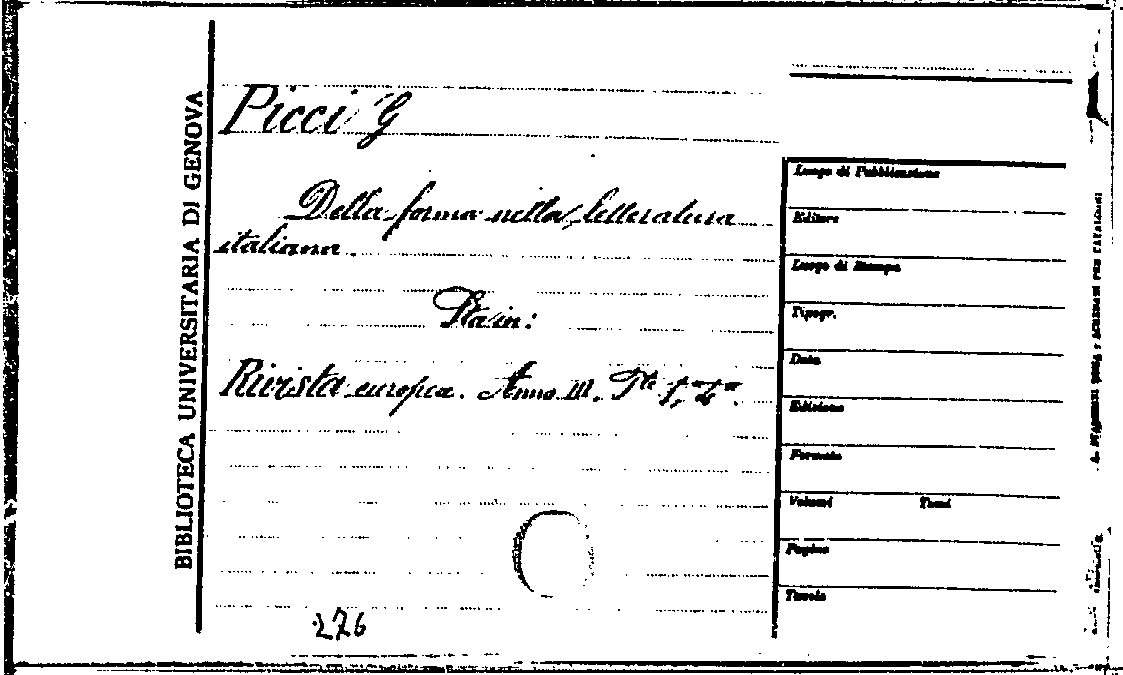 BIBLIOTECA UNIVERSITARIA DI GENOVA
Picci G
Della forma nella letteratura
italiana.
Sta in:
Rivista europea. Anno III. Pte
276
Luogo di Pubblicazione
Editore
Luogo di Stampa
Tipogr.
Data
Edizione
Formato
Volumi Tomi
Pagine
Tavole